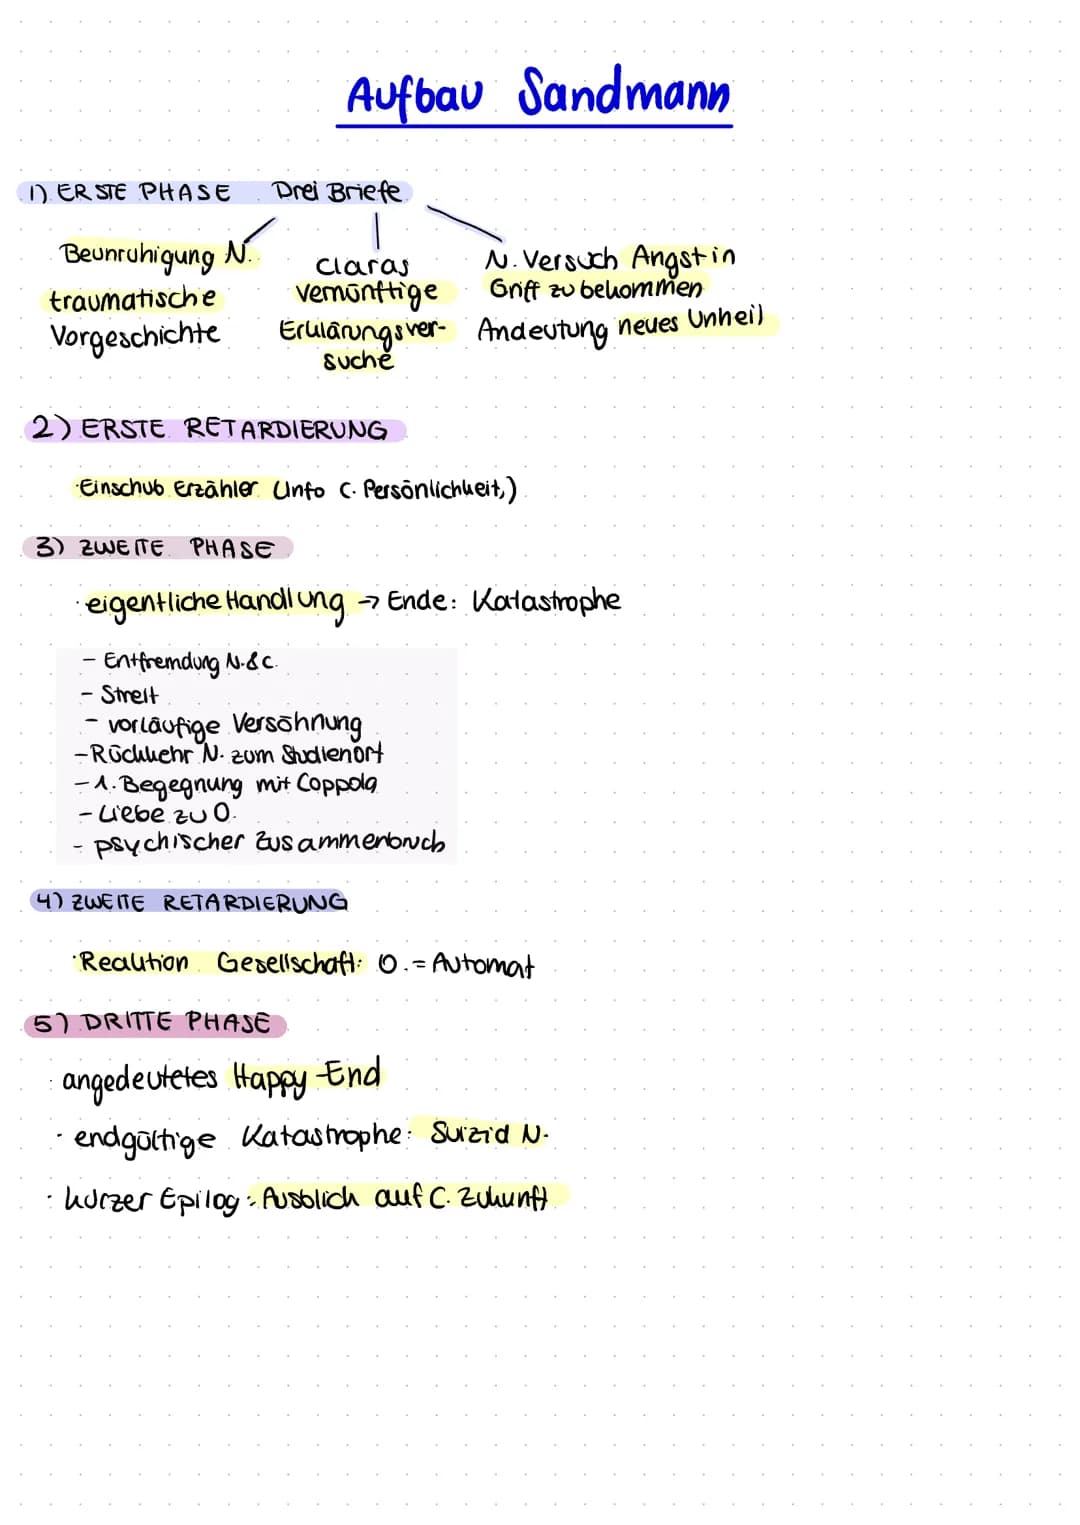 Aufbau Sandmann
1) ERSTE PHASE Drei Briefe
Beunruhigung N.
traumatische
Vorgeschichte
Claras
vernünftige
Erklärungsver-
suche
N. Versuch Angst in
Griff zu bekommen
Andeutung neues Unheil
2) ERSTE RETARDIERUNG
·Einschub Erzähler (Info C. Persönlichkeit,)
3) ZWEITE PHASE
·eigentliche Handlung → Ende: Katastrophe
- Entfremdung N.&C.
- Streit
- vorläufige Versöhnung
- Rückkehr N. zum Studienort
- 1. Begegnung mit Coppola
- Liebe zu O.
- psychischer Zusammenbruch
4) ZWEITE RETARDIERUNG
·Reaktion Gesellschaft: O. = Automat
5) DRITTE PHASE
· angedeutetes Happy-End
· endgültige Katastrophe: Suizid N.
· kurzer Epilog: Ausblick auf C. Zukunft